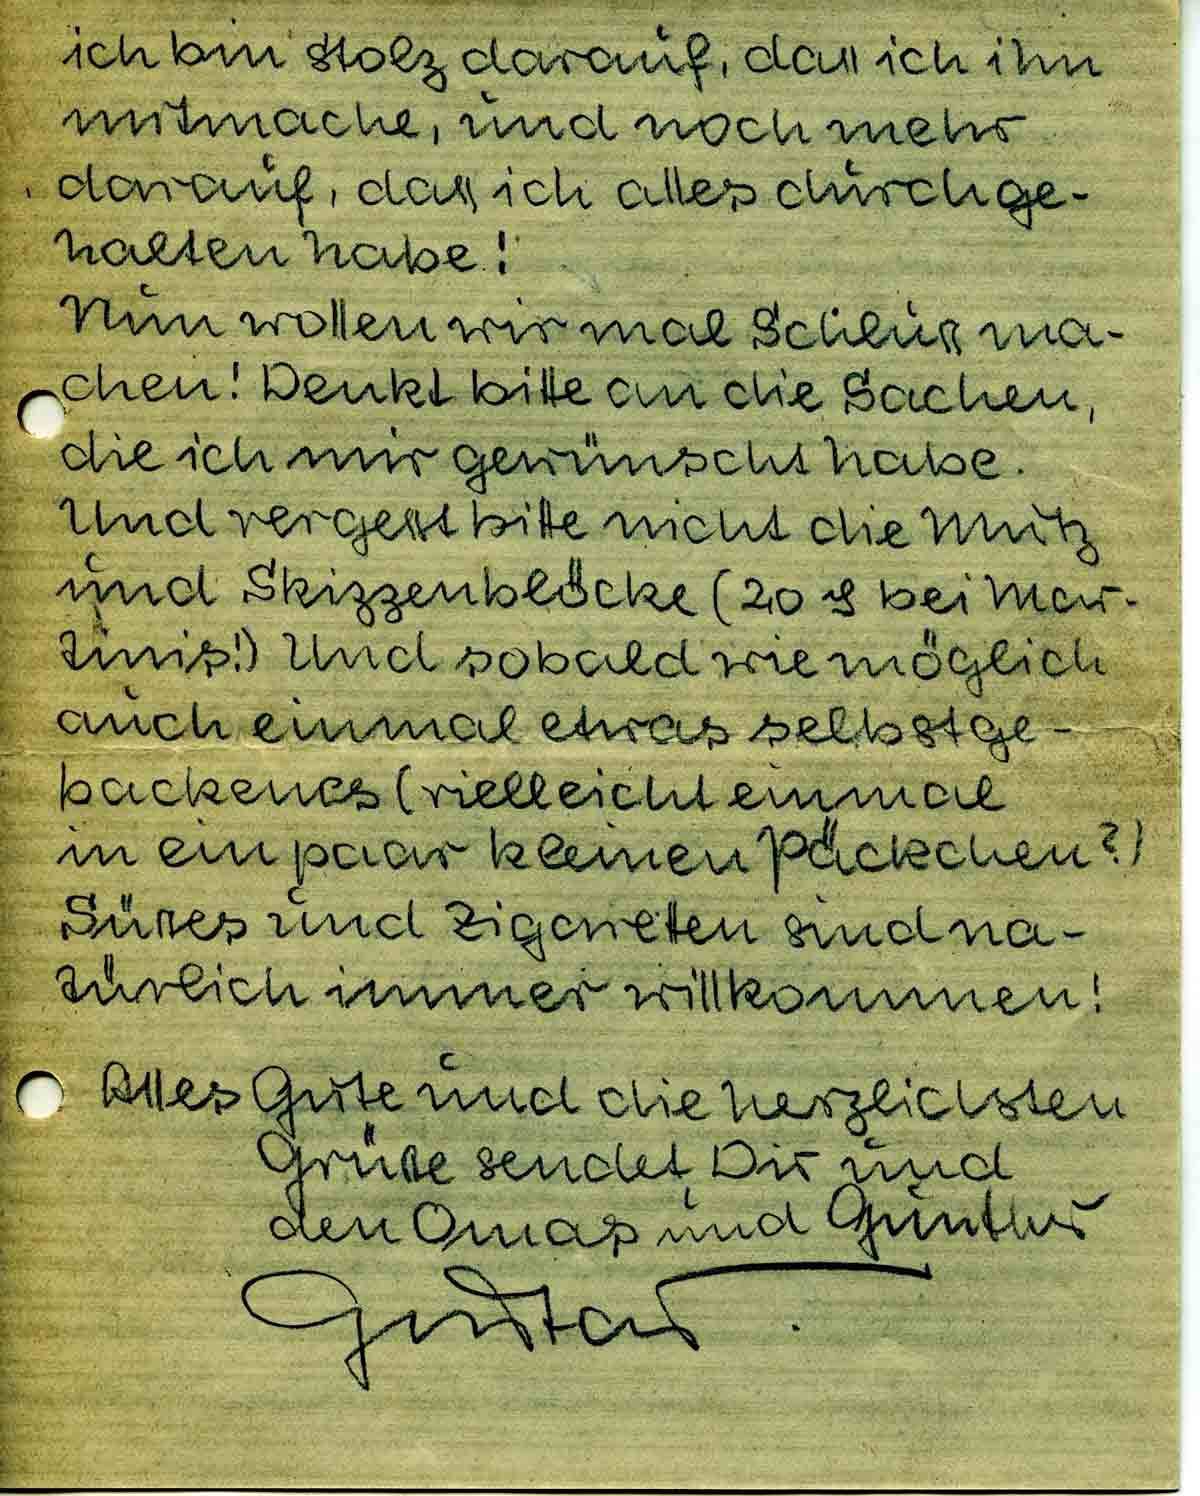 ich bin stolz darauf, daß ich ihn
mitmache, und noch mehr
darauf, daß ich alles durchge-
halten habe!
Nun wollen wir mal Schluß ma-
chen! Denkt bitte an die Sachen,
die ich mir gewünscht habe.
Und vergeßt bitte nicht die Mütz
und Skizzenblöcke (20 ₰ bei Mar-
tinis!) Und sobald wie möglich
auch einmal etwas selbstge-
backenes (vielleicht einmal
in ein paar kleinen Päckchen?)
Süßes und Zigaretten sind na-
türlich immer willkommen!
Alles Gute und die herzlichsten
Grüße sendet Dir und
den Omas und Günther
Gustav